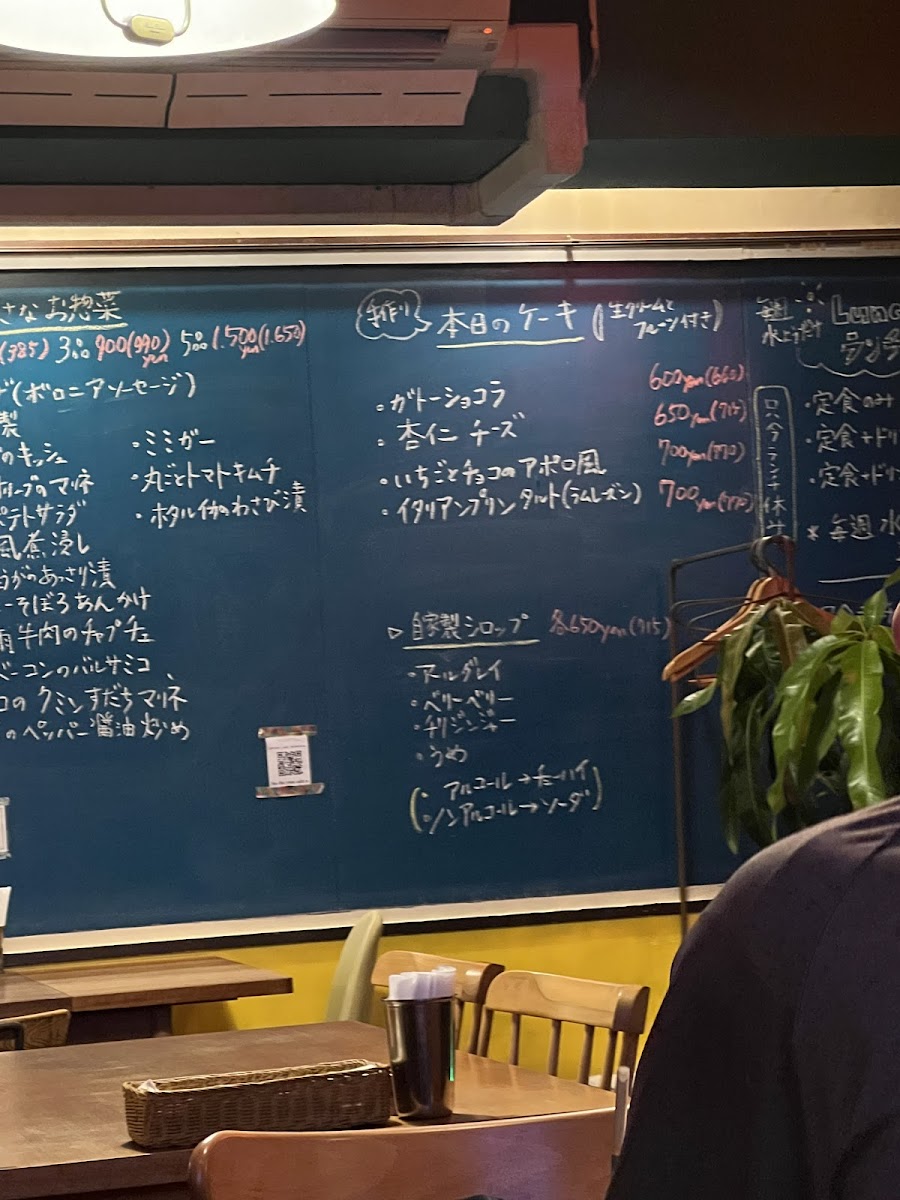 さなお惣菜
(385) 3品 900(990)yen 5品 1.500(1.650)yen
(ボロニアソーセージ)
製
のキッシュ
のマリネ
ポテトサラダ
風煮浸し
のあっさり漬
そぼろあんかけ
牛肉のチャプチェ
ベーコンのバルサミコ
のクミンすだちマリネ
のペッパー醤油炒め
・ミミガー
・丸ごとトマトキムチ
・ホタルイカのわさび漬
手作り
本日のケーキ (生クリームとフルーツ付き)
・ガトーショコラ 600yen(660)
・杏仁チーズ 650yen(715)
・いちごとチョコのアポロ風 700yen(770)
・イタリアンプリンタルト(ラムレーズン) 700yen(770)
▷自家製シロップ 各650yen(715)
・アールグレイ
・ベリーベリー
・チリジンジャー
・うめ
(・アルコール→チューハイ
・ノンアルコール→ソーダ)
毎週
水
Lunc
ランチ
只今ランチ休
・定食のみ
・定食+ドリ
・定食+ドリ
* 毎週 水